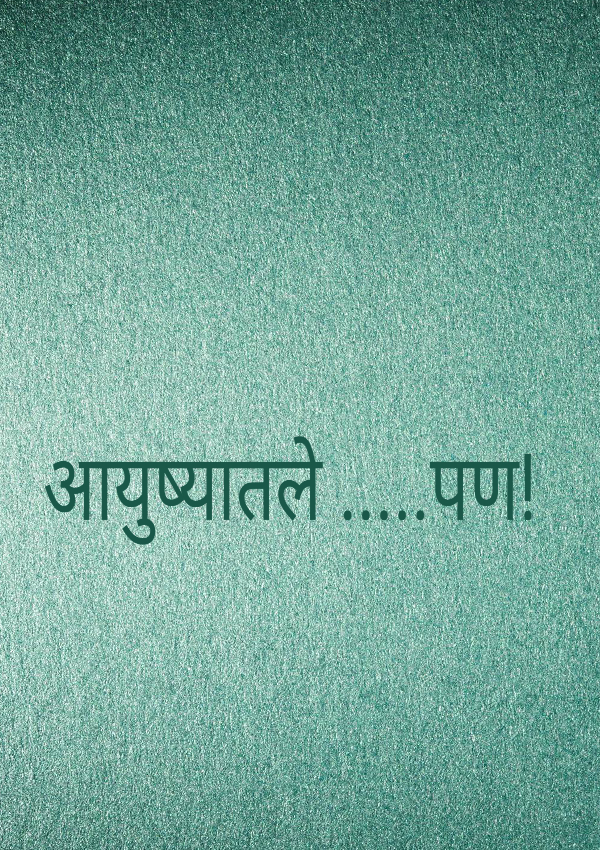 आयुष्यातले .....पण!